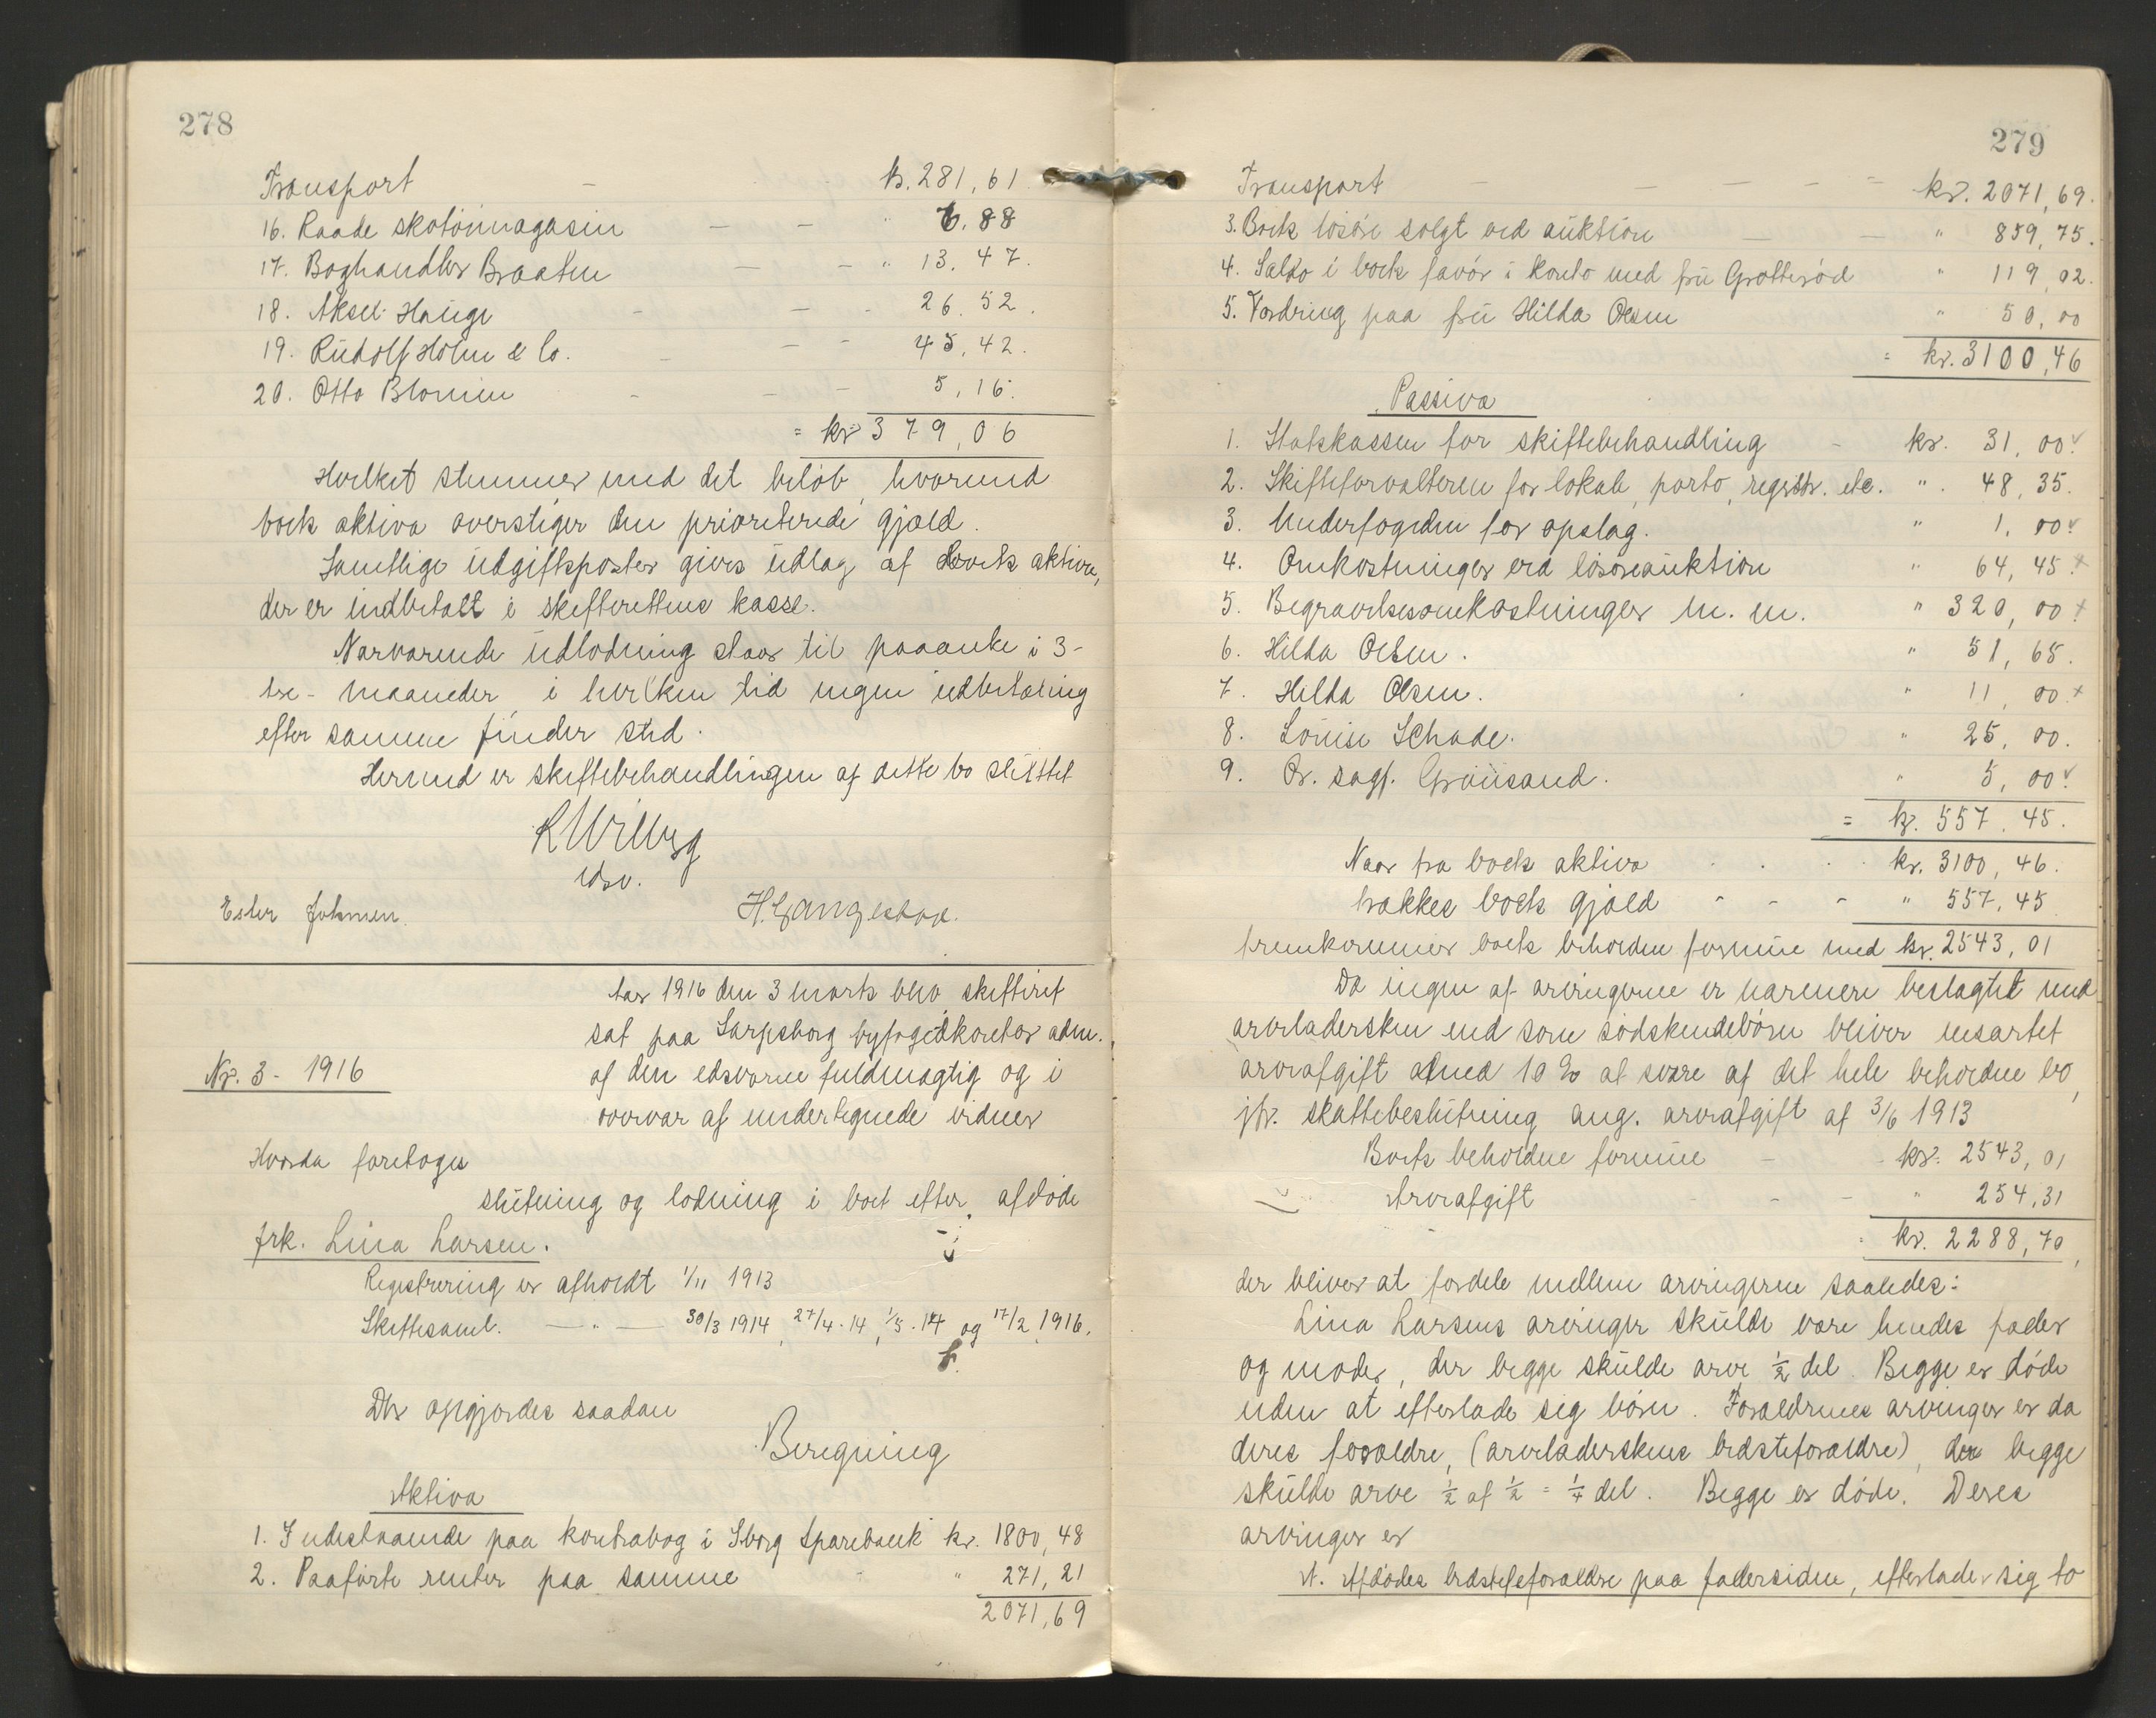 278
Transport - kr. 281,61.
16. Raade skotöimagasin - - " 6.88
17. Boghandler Braaten - - " 13.47.
18. Aksel Hauge - - - 26.52.
19. Rudolf Holm & Co. - - - 45,42.
20. Otto Blomin - - - 5,16.
= kr 379,06
Hvilket stemmer med det beløb, hvormed
boets aktiva overstiger den prioriterede gjæld.
Samtlige udgiftsposter gives udlag af boets aktiva,
der er indbetalt i skifterettens kasse.
Nærværende udlodning staar til paaanke i 3-
tre- maaneder, i hvilken tid ingen udbetaling
efter samme finder sted.
Hermed er skiftebehandlingen af dette bo sluttet
K Wilberg
edsv.
Ester Johnsen. H. Langestad.
Aar 1916 den 3 marts blev skifteret
sat paa Sarpsborg byfogedkontor adm.
Nr. 3 - 1916
af den edsvorne fuldmægtig og i
overvær af undertegnede vidner
Hvorda foretoges
slutning og lodning i boet efter afdøde
frk. Lina Larsen.
Registrering er afholdt 1/11 1913
Skiftesaml. - " - 30/3 1914, 27/4.14, 1/5.14 og 17/2 1916.
Der opgjordes saadan
Beregning
Aktiva
1. Indestaaende paa kontrabog i Sborg Sparebank kr. 1800,48
2. Paaførte renter paa samme - " 271,21
2071,69
279
Transport - - - - - kr. 2071,69.
3. Boets løsøre solgt ved auktion - - " 859,75.
4. Saldo i boets favør i konto med fru Grotterød " 119,02.
5. Fordring paa fru Hilda Olsen " 50,00
= kr. 3100,46
Passiva
1. Statskassen for skiftebehandling - kr. 31,00
2. Skifteforvalteren for lokale, porto, registr. etc. " 48,35.
3. Underfogden for opslag. " 1,00
4. Omkostninger ved løsøreauktion " 64,45
5. Begravelsesomkostninger m. m. " 320,00
6. Hilda Olsen. " 51,65.
7. Hilda Olsen. " 11,00
8. Louise Schade. " 25,00.
9. Or. sagf. Grøusand. " 5,00
= kr. 557.45.
Naar fra boets aktiva . . . kr. 3100,46.
trækkes boets gjæld - - - " 557,45
fremkommer boets beholdne formue med kr. 2543,01
Da ingen af arvingerne er nærmere beslægtet med
arveladersken end som sødskendebørn bliver ensartet
arveafgift med 10 % at svare af det hele beholdne bo,
jfr. skattebeslutning ang. arveafgift af 3/6 1913
Boets beholdne formue - kr. 2543,01
Arveafgift - - - " 254,31
kr. 2288,70,
der bliver at fordele mellem arvingerne saaledes:
Lina Larsens arvinger skulde være hendes fader
og moder, der begge skulde arve 1/2 del. Begge er døde
uden at efterlade sig børn. Forældrenes arvinger er da
deres forældre, (arveladerskens bedsteforældre), der begge
skulde arve 1/2 af 1/2 = 1/4 del. Begge er døde. Deres
arvinger er
A. Afdødes bedsteforældre paa fadersiden, efterlader sig to